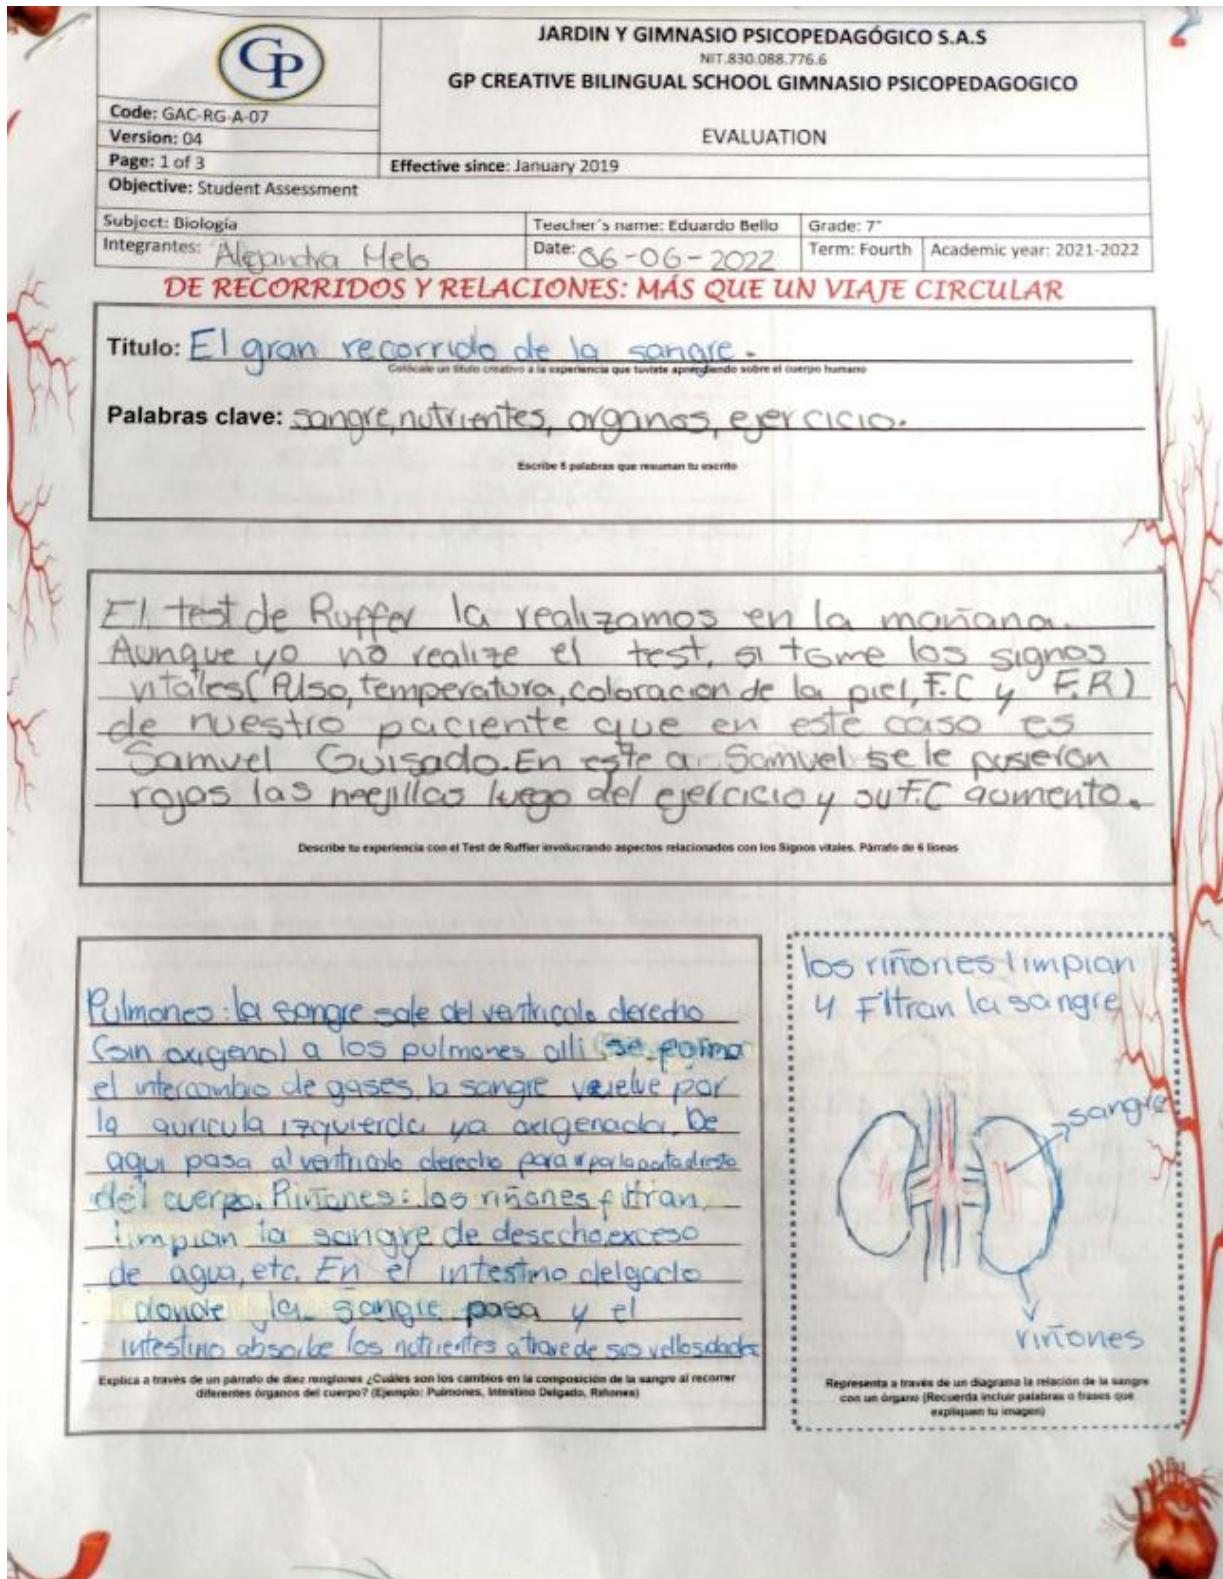 GP
JARDIN Y GIMNASIO PSICOPEDAGÓGICO S.A.S
NIT.830.088.776.6
GP CREATIVE BILINGUAL SCHOOL GIMNASIO PSICOPEDAGOGICO
Code: GAC-RG-A-07
Version: 04
EVALUATION
Page: 1 of 3
Effective since: January 2019
Objective: Student Assessment
Subject: Biología
Teacher's name: Eduardo Bello
Grade: 7°
Integrantes: Alejandra Melo
Date: 06-06-2022
Term: Fourth
Academic year: 2021-2022
DE RECORRIDOS Y RELACIONES: MÁS QUE UN VIAJE CIRCULAR
Título: El gran recorrido de la sangre.
Colócale un título creativo a la experiencia que tuviste aprendiendo sobre el cuerpo humano
Palabras clave: sangre, nutrientes, organos, ejercicio.
Escribe 5 palabras que resuman tu escrito
El test de Ruffer la realizamos en la mañana.
Aunque yo no realize el test, si tome los signos
vitales (Pulso, temperatura, coloracion de la piel, F.C y F.R)
de nuestro paciente que en este caso es
Samuel Guisado. En este a Samuel se le pusieron
rojas las mejillas luego del ejercicio y su F.C aumento.
Describe tu experiencia con el Test de Ruffier involucrando aspectos relacionados con los Signos vitales. Párrafo de 6 líneas
Pulmones: la sangre sale del ventriculo derecho
(sin oxigeno) a los pulmones alli se forma
el intercambio de gases, la sangre vuelve por
la auricula izquierda ya oxigenada. De
aqui pasa al ventriculo derecho para ir por la
del cuerpo. Riñones: los riñones filtran,
limpian la sangre de desecho, exceso
de agua, etc. En el intestino delgado
donde la sangre pasa y el
intestino absorbe los nutrientes a trave de sus vellosidades
Explica a través de un párrafo de diez renglones ¿Cuáles son los cambios en la composición de la sangre al recorrer
diferentes órganos del cuerpo? (Ejemplo: Pulmones, Intestino Delgado, Riñones)
los riñones limpian
y Filtran la sangre
sangre
riñones
Representa a través de un diagrama la relación de la sangre
con un órgano (Recuerda incluir palabras o frases que
expliquen tu imagen)